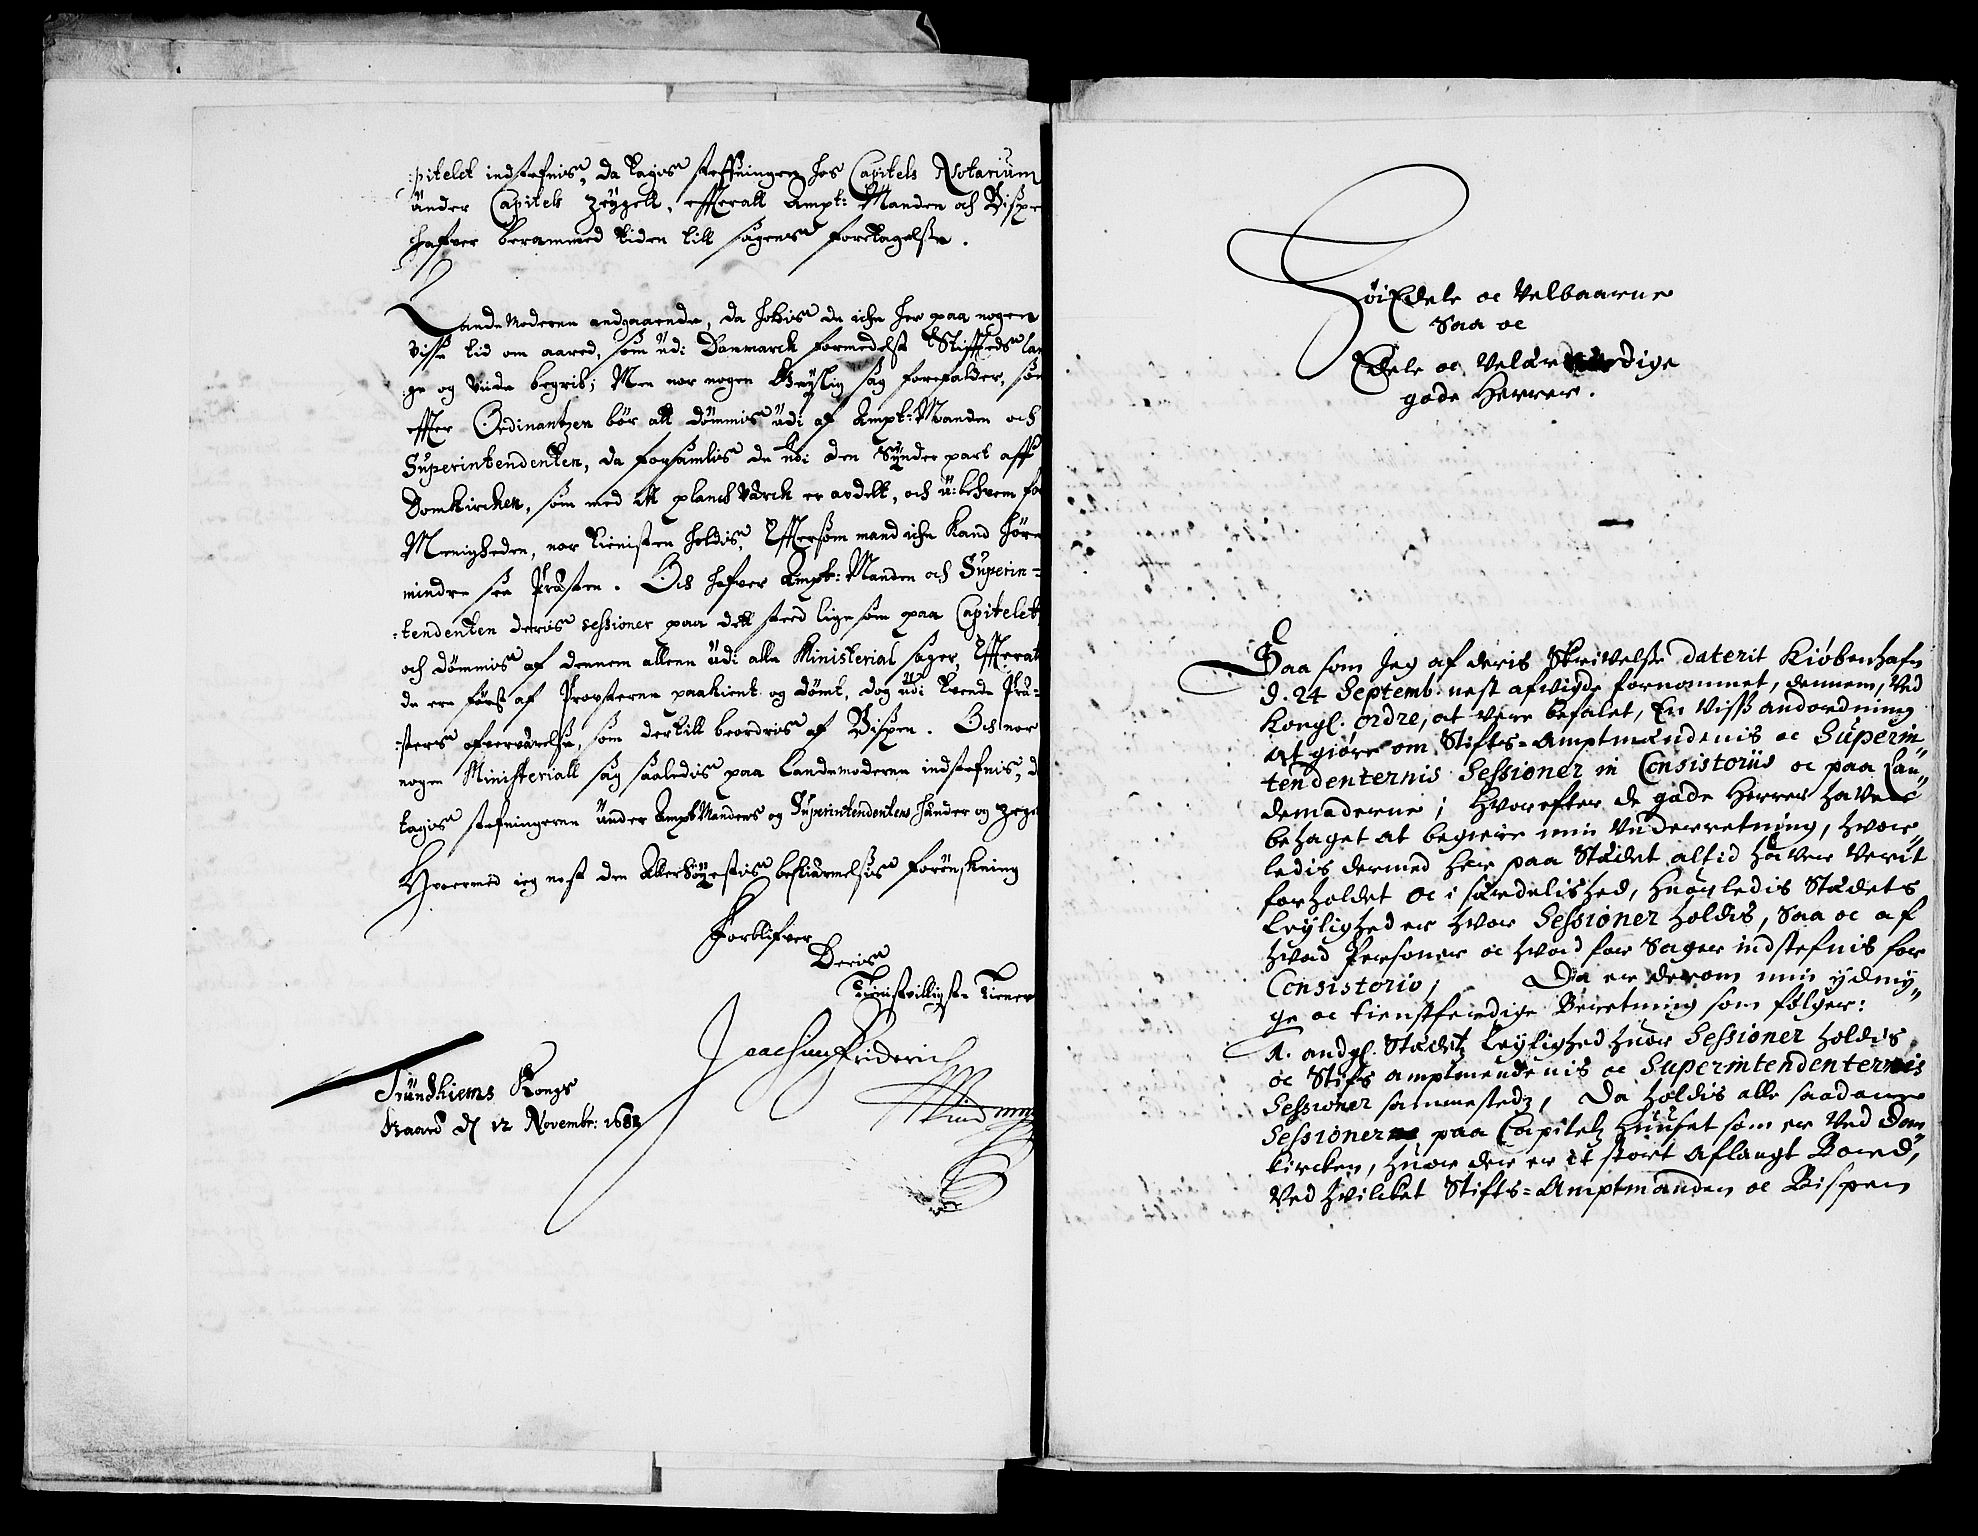 :pitelet indstefnis, da tagis steffningen hos Capitels Notarium
under Capitels Zeygell, effteratt Ampt:Manden och Bispe
hafver berammed tiden till sagens foretagelsse.
Landemoderne andgaaende, da holdis de iche her paa nogen
visse tid om aared, som udi Danmarck formedelst Stiffteds lan
ge og vide begrib; Men nar nogen Geystlig sag forefalder, som
effter Ordinantzen bör att dömmis udi af Ampt:Manden och
Superintendenten, da forsamlis de udi den Synder part aff
Domkircken, som med ett planckVärck er avdelt, och u:beqvem for
Menigheden, nar tienisten holdis, Efftersom mand iche kand höre
mindre see Præsten. Och hafver Ampt:Manden och Superin=
:tendenten deris sessioner paa dett sted lige som paa Capitelet,
och dömmis af dennem allene udi alle Ministerial sager, Efferat
de ere först af Provsterne paakient og dömt, dog udi tvende Præ=
:sters ofverværelse, som dertill beordris af Bispen. Och nar
nogen Ministeriall sag saaledis paa Landemoderne indstefnis, da
tagis stefningerne under AmptMandens og Superintendentens hænder og zegel
Hvormed ieg nest den Allerhöyestis beskiærmelsis forönskning
Forblifver
Deris
Tienistvilligste Tiener
Joachim Friderich
Vind mppa
Trundhiems Kongs
Gaard d 12 Novembr: 1682
HöiEdele oc Velbaarne
Saa oc
Edele oc Velærværdige
gode Herrer.
Saa som Jeg af deris Skrivelse daterit Kiöbenhafn
d. 24 Septemb. nest afvigde fornommet, dennem, ved
Kongl. ordre, at vere befalet, En viss andordning
at giöre om Stifts=Amptmændenis oc Superin„
tendenternis Sessioner in Consistoriis oc paa Lan„
demoderne; Hvorefter de gode Herrer haver
behaget at begiere min underretning, hvor„
ledis dermed her paa Stædet altid haver verit
forholdet oc i særdelished, huorledis Stædets
Leylighed er hvor Sessioner holdis, saa oc af
hvad Personer oc hvad for Sager indstefnis for
Consistorio, Da er derom min ydmy„
ge oc tienstferdige Beretning som fölger:
1. andgl. Stædetz Leylighed huor Sessioner holdis
oc Stifts amptmendenis oc Superintendenternis
Sessioner sammestedz, Da holdis alle saadanne
Sessioner paa Capitelz Huuset som er ved Dom
kircken, huor der er et stort aflangt Bord,
ved hvilcket Stifts=Amptmanden oc Bispen